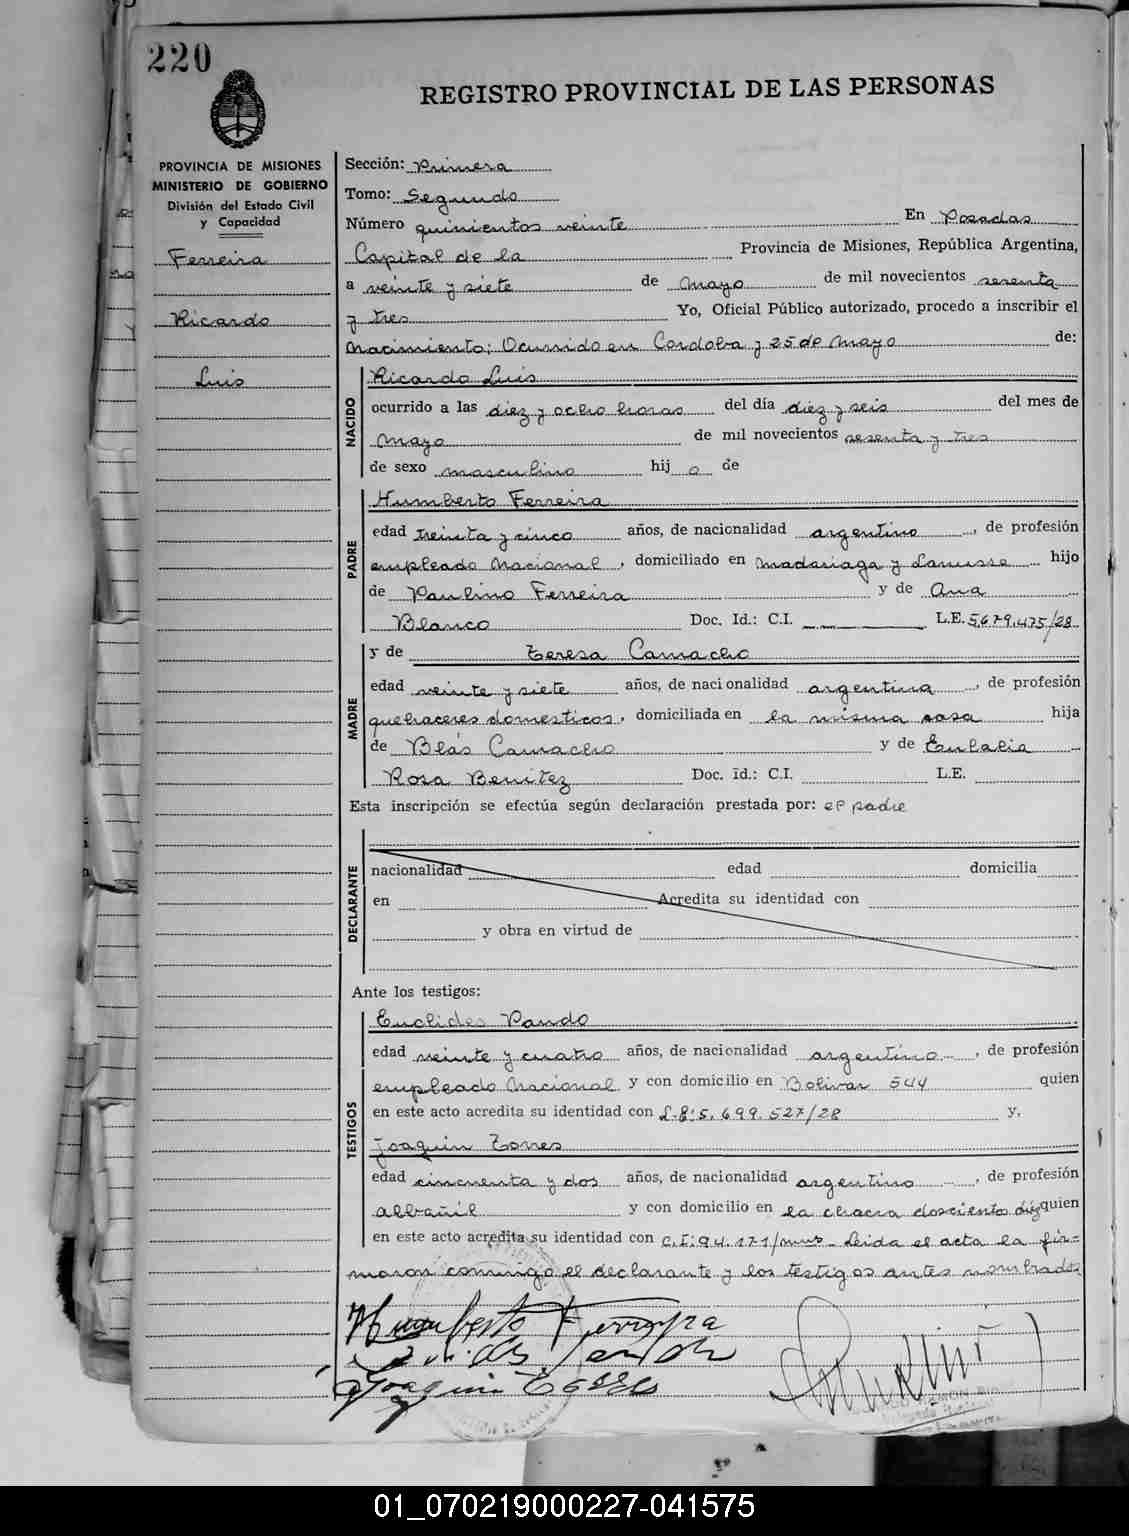 220
REGISTRO PROVINCIAL DE LAS PERSONAS
PROVINCIA DE MISIONES
MINISTERIO DE GOBIERNO
División del Estado Civil
y Capacidad
Ferreira
Ricardo
Luis
Sección: Primera
Tomo: Segundo
Número quinientos veinte En Posadas
Capital de la Provincia de Misiones, República Argentina,
a veinte y siete de Mayo de mil novecientos sesenta
y tres Yo, Oficial Público autorizado, procedo a inscribir el
Nacimiento; Ocurrido en Cordoba y 25 de Mayo de:
NACIDO
Ricardo Luis
ocurrido a las diez y ocho horas del día diez y seis del mes de
Mayo de mil novecientos sesenta y tres
de sexo masculino hij o de
PADRE
Humberto Ferreira
edad treinta y cinco años, de nacionalidad argentino, de profesión
empleado Nacional, domiciliado en Madariaga y Lanusse hijo
de Paulino Ferreira y de Ana
Blanco Doc. Id.: C.I. L.E. 5.679.475/28
MADRE
y de Teresa Camacho
edad veinte y siete años, de nacionalidad argentina, de profesión
quehaceres domesticos, domiciliada en la misma casa hija
de Blás Camacho y de Eulalia
Rosa Benitez Doc. Id.: C.I. L.E.
Esta inscripción se efectúa según declaración prestada por: el padre
DECLARANTE
nacionalidad edad domicilia
en Acredita su identidad con
y obra en virtud de
Ante los testigos:
TESTIGOS
Euclides Pando
edad veinte y cuatro años, de nacionalidad argentino, de profesión
empleado Nacional y con domicilio en Bolivar 544 quien
en este acto acredita su identidad con L.E: 5.699.527/28 y.
Joaquin Torres
edad cincuenta y dos años, de nacionalidad argentino, de profesión
albañil y con domicilio en la chacra doscientos diez quien
en este acto acredita su identidad con C.I: 94.171/mnes Leida el acta la fir=
maron conmigo el declarante y los testigos antes nombrados
Humberto Ferreyra
Joaquin Torres
01_070219000227-041575